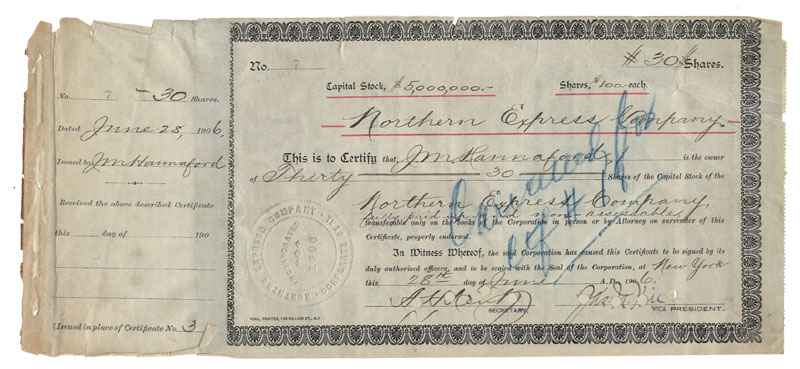 No. 7 - 30 Shares.
Dated June 28, 1906,
Issued to J M Hannaford
Received the above described Certificate
this day of 190
Issued in place of Certificate No. 3
No. 7
# 30 # Shares.
Capital Stock, $5,000,000.- Shares, $100.-each.
Northern Express Company.
This is to Certify that, J M Hannaford, is the owner
of Thirty 30 Shares of the Capital Stock of the
Northern Express Company,
fully paid up and non-assessable,
transferable only on the books of the Corporation in person or by Attorney on surrender of this
Certificate, properly endorsed.
In Witness Whereof, the said Corporation has caused this Certificate to be signed by its
duly authorized officers, and to be sealed with the Seal of the Corporation, at New York
this 28th day of June A.D. 1906.
SECRETARY.
VICE PRESIDENT.
KING, PRINTER, 105 WILLIAM ST., N.Y.